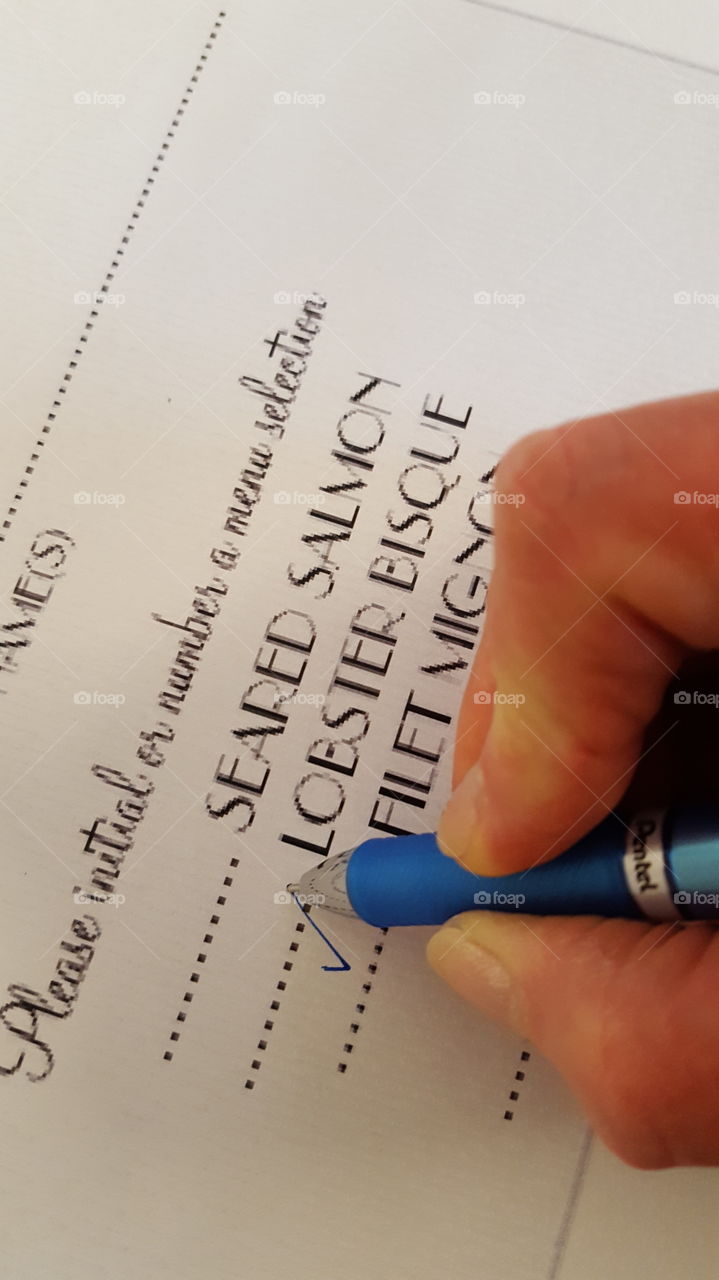 NAME(S)
Please initial or number a menu selection:
SEARED SALMON
LOBSTER BISQUE
FILET MIGNON
Pentel
foap